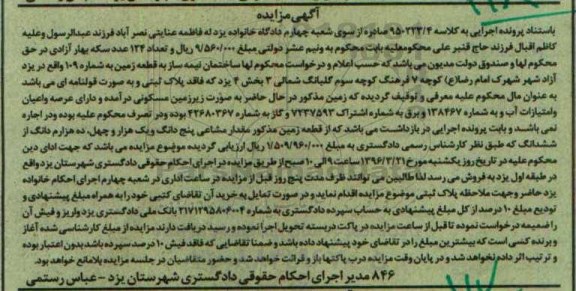 آگهی مزایده
باستناد پرونده اجرایی به کلاسه 95-0333/4 صادره از سوی شعبه چهارم دادگاه خانواده یزد له فاطمه عنایتی نصر آباد فرزند عبدالرسول وعلیه
کاظم اقبال فرزند حاج قنبر علی محکوم‌علیه بابت محکوم به ونیم عشر دولتی مبلغ 9/560/000 ریال و تعداد 124 عدد سکه بهار آزادی در حق
محکوم لها و صندوق دولت مدیون می باشد که حسب اعلام و درخواست محکوم لها ساختمان نیمه ساز به قطعه زمین به شماره 109 واقع در یزد
آزاد شهر شهرک امام رضا(ع) کوچه 7 فرهنگ کوچه سوم گلبانگ شمالی 3 بخش 4 یزد که فاقد پلاک ثبتی و به صورت قولنامه ای می باشد
به عنوان مال محکوم علیه معرفی و توقیف گردیده که زمین مذکور در حال حاضر به صورت زیرزمین مسکونی درآمده و دارای عرصه واعیان
وامتیازات آب و به شماره 138467 و برق به شماره اشتراک 7237593 و گاز به شماره 42680367 بوده ودر تصرف محکوم علیه بوده ودر اجاره
نمی باشند و بابت پرونده اجرایی در بازداشت می باشد که از قطعه زمین مذکور مقدار مشاعی پنج دانگ ویک هزار و چهل، ده هزارم دانگ از
ششدانگ که طبق نظر کارشناس رسمی دادگستری به مبلغ 1/509/960/000 ریال ارزیابی گردیده موضوع مزایده می باشد که جهت ادای دین
محکوم علیه در تاریخ روز یکشنبه مورخ 1396/3/21 ساعت 9 الی 10 صبح از طریق مزایده در اجرای احکام حقوقی دادگستری شهرستان یزد واقع
در طبقه اول یزد به فروش می رسد لذا طالبین می توانند ظرف مدت پنج روز قبل از مزایده در ساعت اداری در شعبه چهارم اجرای احکام خانواده
یزد حاضر وجهت ملاحظه پلاک ثبتی موضوع مزایده اقدام نماید و در صورت تمایل به خرید آن تقاضای کتبی خود را به همراه مبلغ پیشنهادی و
تودیع مبلغ 10 درصد از کل مبلغ پیشنهادی به حساب سپرده دادگستری به شماره 2171295804004 بانک ملی دادگستری یزد واریز و فیش آن
را ضمیمه درخواست نموده تا قبل از ساعت مزایده در پاکت دربسته تحویل اجرا نموده و رسید دریافت دارند مزایده از مبلغ کارشناسی شده آغاز
و برنده کسی است که بیشترین مبلغ را در تقاضای خود پیشنهاد داده باشد و ضمنا تقاضایی که فاقد فیش 10 درصد سپرده باشد بدون اعتبار بوده
و ترتیب اثر داده نخواهد شد و در پایان وقت مزایده درب پاکتها باز و قرائت خواهد شد و حضور متقاضیان در جلسه مزایده بلامانع خواهد بود.
846 مدیر اجرای احکام حقوقی دادگستری شهرستان یزد - عباس رستمی